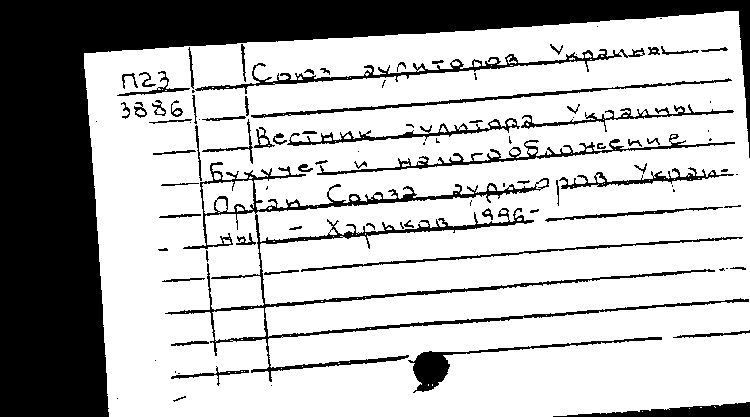 П23 Союз аудиторов Украины
3886
Вестник аудитора Украины:
Бухучет и налогообложение:
Орган Союза аудиторов Украи-
ны. - Харьков, 1996-